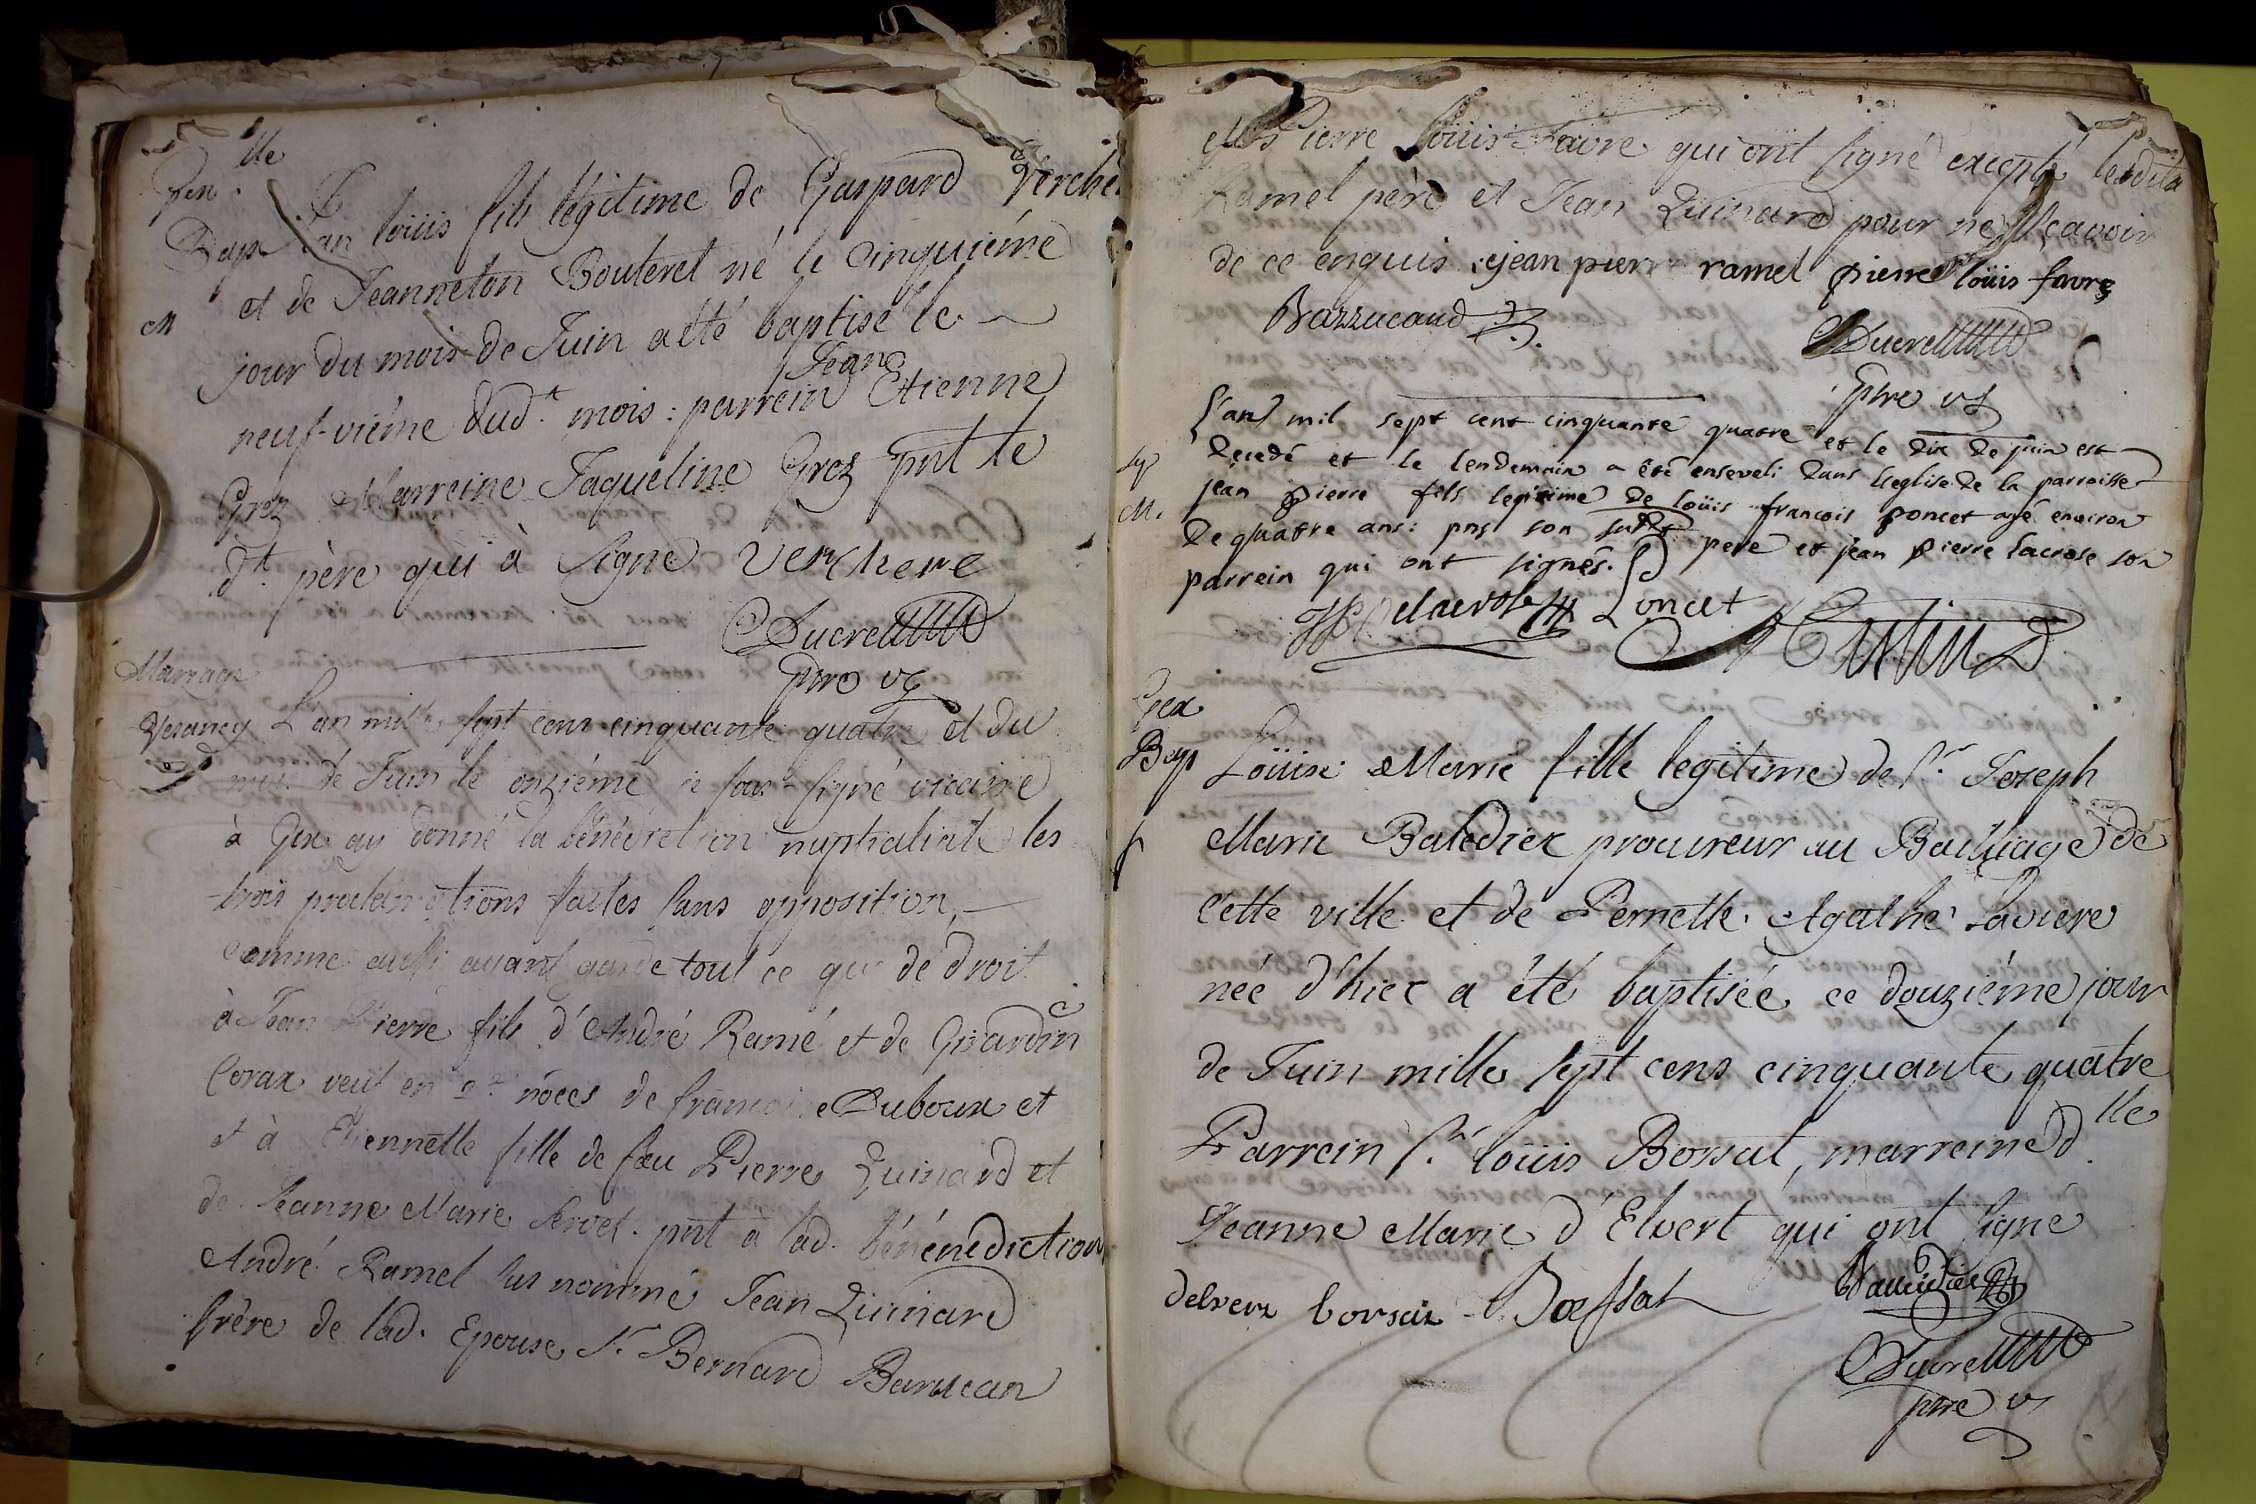 lle
Gex
Bap Jan loüis fils légitime de Gaspard Verche
et de Jeanneton Bouteret né le cinquiéme
M
jour du mois de Juin a été baptisé le
Jean
neuf-viéme dud.t mois : parrein Etienne
Grez Marreine Jaqueline Grez pnt le
d.t père qui à signé Verchere
Ducret
ptre vic
Mariage
Vesancy L'an mille sept cens cinquante quatre et du
mois de Juin le onziéme je sous-signé vicaire
à Gex ay donné la bénédiction nuptiale les
trois proclamations faites sans opposition,
comme aussi ayant gardé tout ce qui de droit
à Jean Pierre fils d'André Ramé et de Girardine
Corax veuf en 2.e nôces de françoise Duboux et
et à Etiennette fille de feu Pierre Quinard et
de Jeanne Marie Servet. pnt à lad. bénénediction
André Ramel sus nommé Jean Quinard
frère de lad. Epouse S.r Bernard
et S.r Pierre loüis Favre qui ont signé excepté lesdits
Ramel père et Jean Quinard pour ne sçavoir
de ce enquis. jean pierre ramel pierre loüis favre
Bazzucaud
Ducret
ptre v
L'an mil sept cent cinquante quatre et le dix de juin est
Sep decedé et le lendemain a été enseveli dans l'eglise de la parroisse
M. jean pierre fils legitime de loüis françois poncet agé environ
de quatre ans : pns son sudt pere et jean pierre lacrose son
parrein qui ont signés.
Poncet
Gex
Bap Loüise Marie fille legitime de S.r Joseph
f Marie Balédier procureur au Bailliage de
cette ville et de Pernette Agathe Laviere
née d'hier a été baptisée ce douziéme jour
de Juin mille sept cens cinquante quatre
Parrein S.r loüis Borsat, marreine d.lle
Jeanne Marie d'Elvert qui ont signé
delvert borsat
Ducret
ptre v